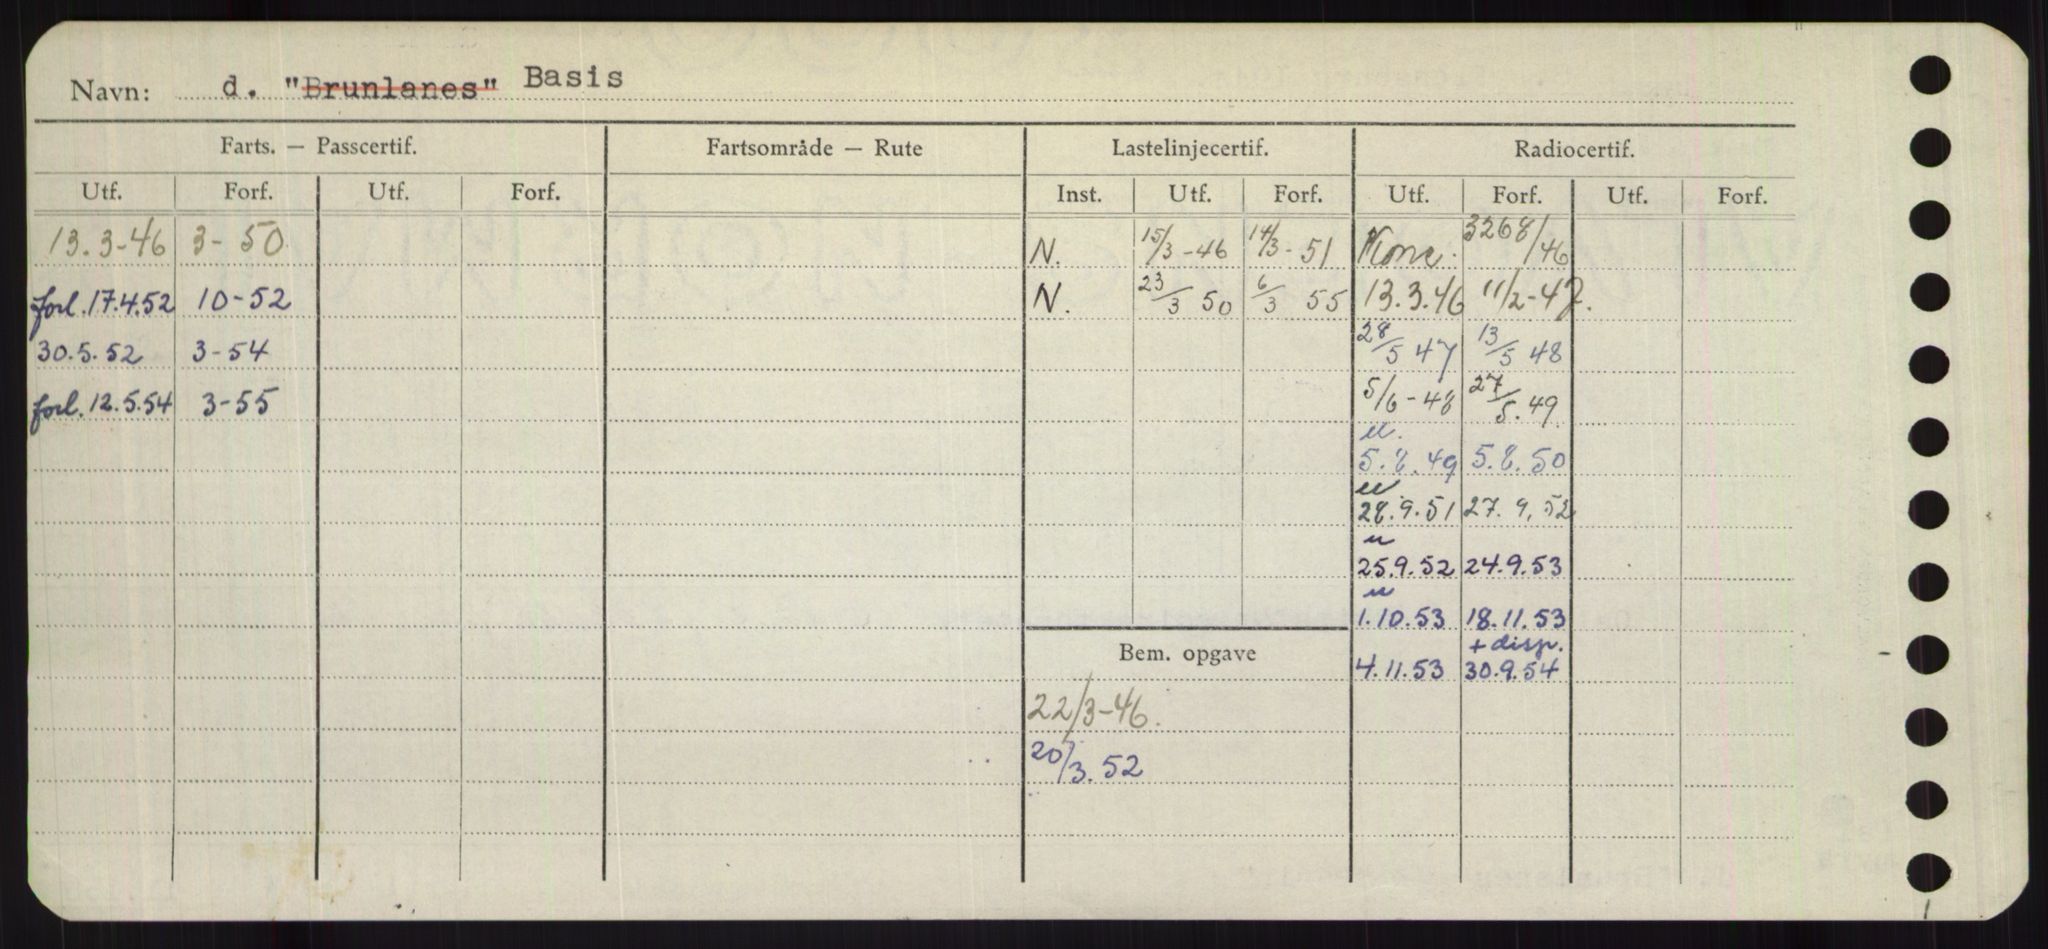 Navn: d. "Brunlanes" Basis
Farts. — Passcertif. Fartsområde — Rute Lastelinjecertif. Radiocertif.
Utf. Forf. Utf. Forf. Inst. Utf. Forf. Utf. Forf. Utf. Forf.
13.3-46 3-50 N. 15/3-46 14/3-51 Konc. 3268/46
forl. 17.4.52 10-52 N. 23/3 50 6/3 55 13.3.46 11/2-47.
30.5.52 3-54 28/5 47 13/5 48
forl. 12.5.54 3-55 5/6-48 27/5.49
u.
5.8.49 5.8.50
u
28.9.51 27.9.52
u
25.9.52 24.9.53
u
1.10.53 18.11.53
+ disp.
Bem. opgave 4.11.53 30.9.54
22/3-46.
20/3.52